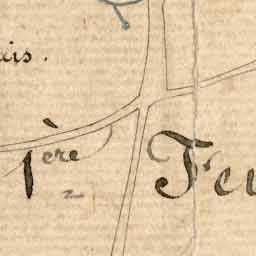 ais.
1ère Feu